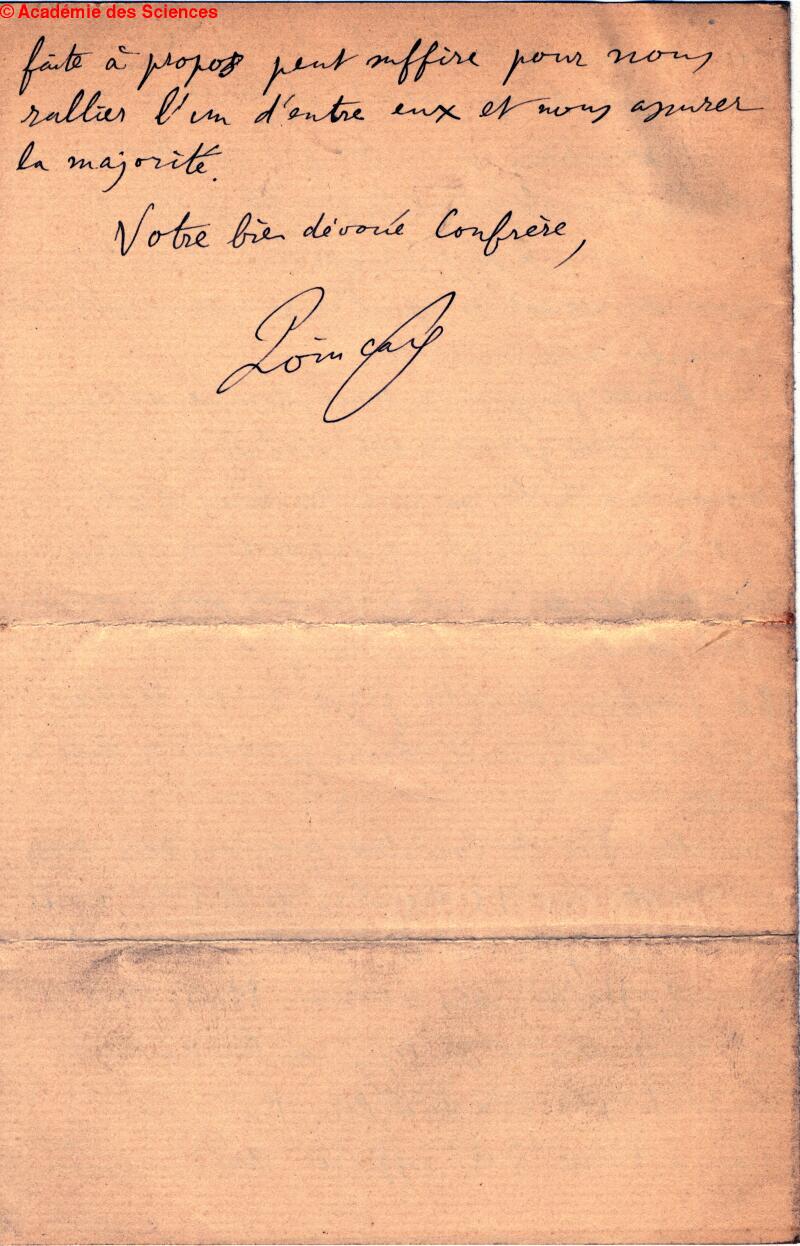 © Académie des Sciences
faite à propos peut suffire pour nous
rallier l'un d'entre eux et nous assurer
la majorité.
Votre bien dévoué Confrère,
Poincaré